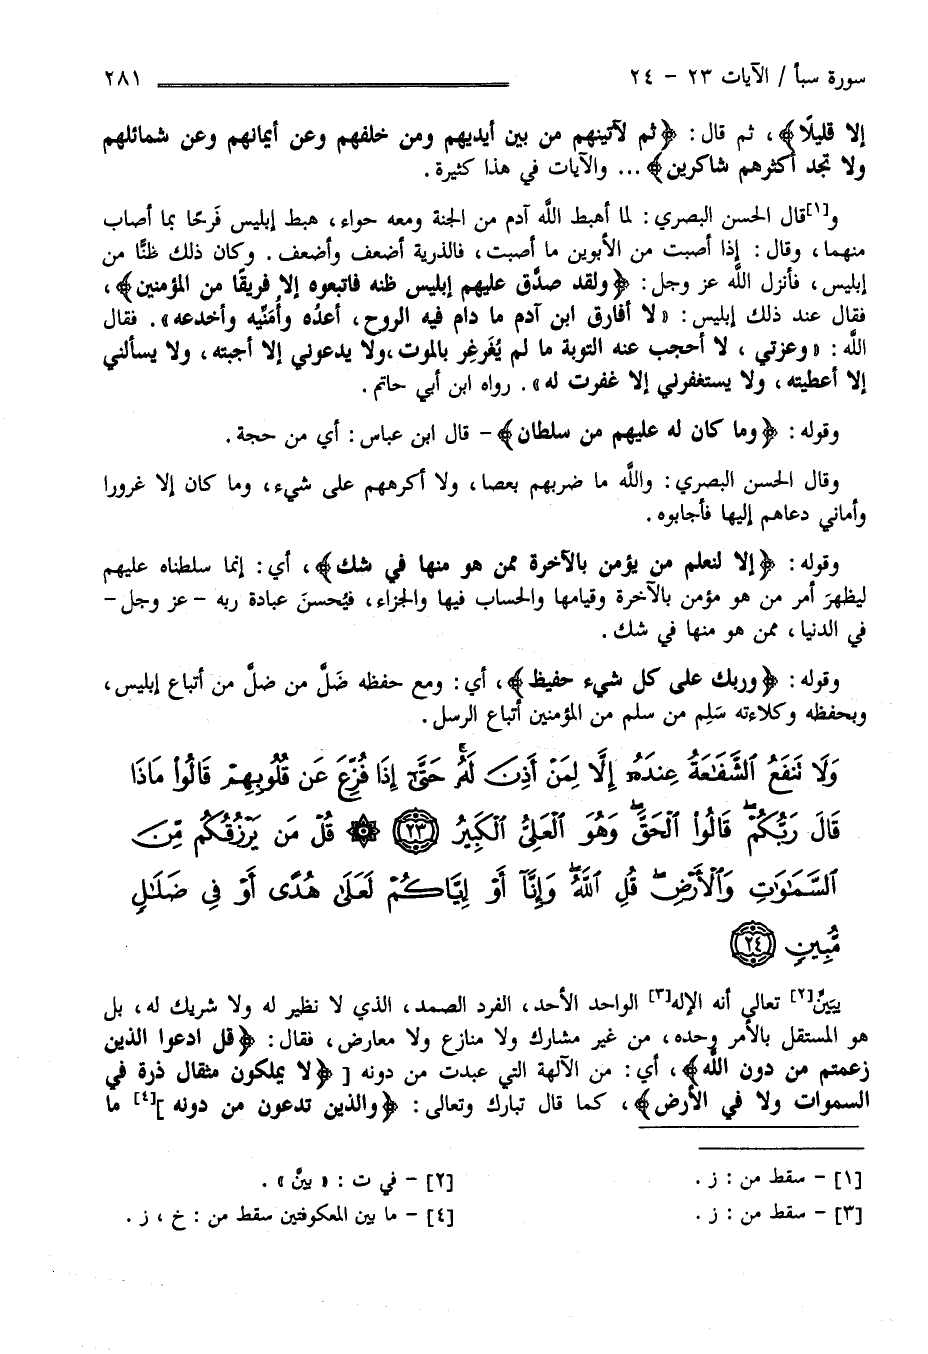 سورة سبأ / الآيات ٢٣ - ٢٤ ٢٨١
إلا قليلًا﴾، ثم قال: ﴿ثم لآتينهم من بين أيديهم ومن خلفهم وعن أيمانهم وعن شمائلهم
ولا تجد أكثرهم شاكرين﴾... والآيات في هذا كثيرة.
و[١]قال الحسن البصري: لما أهبط اللَّه آدم من الجنة ومعه حواء، هبط إبليس فَرحًا بما أصاب
منهما، وقال: إذا أصبت من الأبوين ما أصبت، فالذرية أضعف وأضعف. وكان ذلك ظنًّا من
إبليس، فأنزل اللَّه عز وجل: ﴿ولقد صدَّق عليهم إبليس ظنه فاتبعوه إلا فريقًا من المؤمنين﴾،
فقال عند ذلك إبليس: «لا أفارق ابن آدم ما دام فيه الروح، أعدُه وأُمَنِّيه وأخدعه». فقال
اللَّه: «وعزتي، لا أحجب عنه التوبة ما لم يُغَرغِر بالموت،ولا يدعوني إلا أجبته، ولا يسألني
إلا أعطيته، ولا يستغفرني إلا غفرت له». رواه ابن أبي حاتم.
وقوله: ﴿وما كان له عليهم من سلطان﴾ - قال ابن عباس: أي من حجة.
وقال الحسن البصري: واللَّه ما ضربهم بعصا، ولا أكرههم على شيء، وما كان إلا غرورا
وأماني دعاهم إليها فأجابوه.
وقوله: ﴿إلا لنعلم من يؤمن بالآخرة ممن هو منها في شك﴾، أي: إنما سلطناه عليهم
ليظهرَ أمر من هو مؤمن بالآخرة وقيامها والحساب فيها والجزاء، فيُحسنَ عبادة ربه - عز وجل -
في الدنيا، ممن هو منها في شك.
وقوله: ﴿وربك على كل شيء حفيظ﴾، أي: ومع حفظه ضَلَّ من ضلَّ من أتباع إبليس،
وبحفظه وكلاءته سَلِم من سلم من المؤمنين أتباع الرسل.
وَلَا تَنفَعُ ٱلشَّفَٰعَةُ عِندَهُۥٓ إِلَّا لِمَنْ أَذِنَ لَهُۥ ۚ حَتَّىٰٓ إِذَا فُزِّعَ عَن قُلُوبِهِمْ قَالُوا۟ مَاذَا
قَالَ رَبُّكُمْ ۖ قَالُوا۟ ٱلْحَقَّ ۖ وَهُوَ ٱلْعَلِىُّ ٱلْكَبِيرُ ﴿٢٣﴾ ۞ قُلْ مَن يَرْزُقُكُم مِّنَ
ٱلسَّمَٰوَٰتِ وَٱلْأَرْضِ ۖ قُلِ ٱللَّهُ ۖ وَإِنَّآ أَوْ إِيَّاكُمْ لَعَلَىٰ هُدًى أَوْ فِى ضَلَٰلٍ
مُّبِينٍ ﴿٢٤﴾
يبَينُّ[٢] تعالى أنه الإله[٣] الواحد الأحد، الفرد الصمد، الذي لا نظير له ولا شريك له، بل
هو المستقل بالأمر وحده، من غير مشارك ولا منازع ولا معارض، فقال: ﴿قل ادعوا الذين
زعمتم من دون اللَّه﴾، أي: من الآلهة التي عبدت من دونه [﴿لا يملكون مثقال ذرة في
السموات ولا في الأرض﴾، كما قال تبارك وتعالى: ﴿والذين تدعون من دونه][٤] ما
[١] - سقط من: ز. [٢] - في ت: «بينَّ».
[٣] - سقط من: ز. [٤] - ما بين المعكوفتين سقط من: خ، ز.